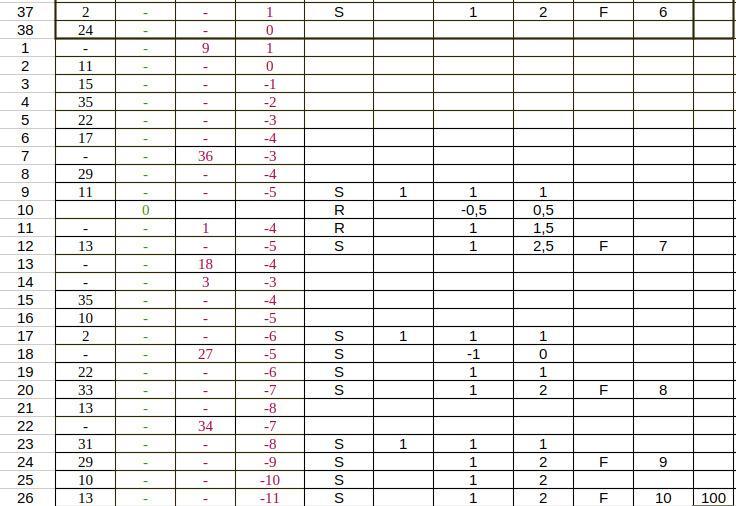 37 2 - - 1 S 1 2 F 6
38 24 - - 0
1 - - 9 1
2 11 - - 0
3 15 - - -1
4 35 - - -2
5 22 - - -3
6 17 - - -4
7 - - 36 -3
8 29 - - -4
9 11 - - -5 S 1 1 1
10 0 R -0,5 0,5
11 - - 1 -4 R 1 1,5
12 13 - - -5 S 1 2,5 F 7
13 - - 18 -4
14 - - 3 -3
15 35 - - -4
16 10 - - -5
17 2 - - -6 S 1 1 1
18 - - 27 -5 S -1 0
19 22 - - -6 S 1 1
20 33 - - -7 S 1 2 F 8
21 13 - - -8
22 - - 34 -7
23 31 - - -8 S 1 1 1
24 29 - - -9 S 1 2 F 9
25 10 - - -10 S 1 2
26 13 - - -11 S 1 2 F 10 100